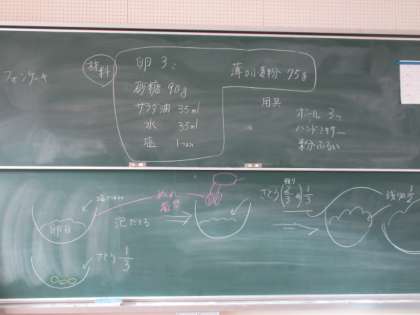 シフォンケーキ
材料
卵 3コ
砂糖 90g
サラダ油 35ml
水 35ml
塩 1つまみ
薄力粉 75g
用具
ボール 3つ
ハンドミキサー
粉ふるい
卵白
泡だてる
さとう 1/3
さとう (2/3の) 1/3